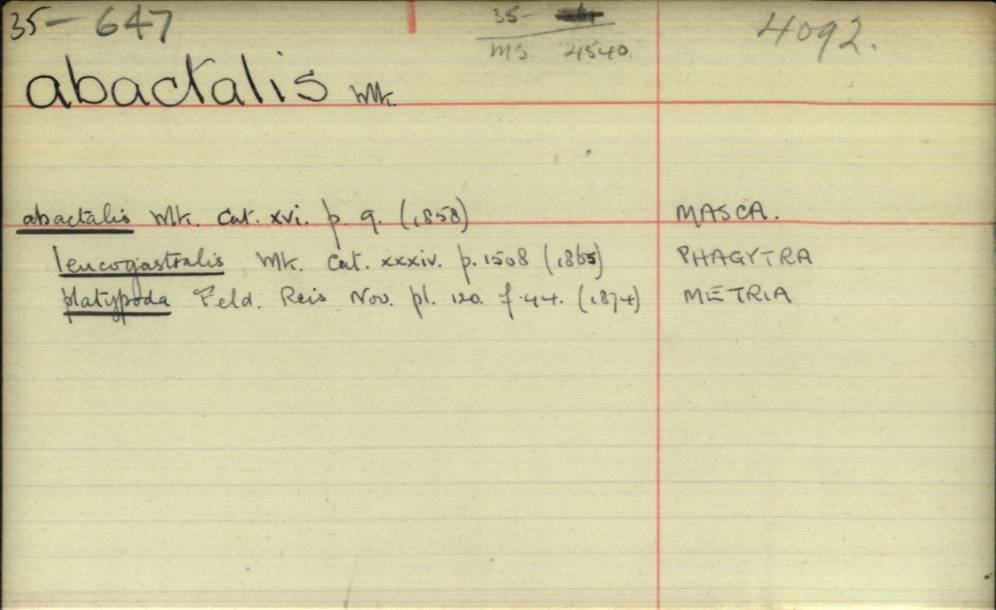 35- 647
35-
MS. 4540.
4092.
abactalis Wk.
abactalis Wk. Cat. xvi. p. 9. (1858) MASCA.
leucogastralis Wk. Cat. xxxiv. p. 1508 (1865) PHAGYTRA
platypoda Feld. Reis Nov. pl. 120. f. 44. (1874) METRIA